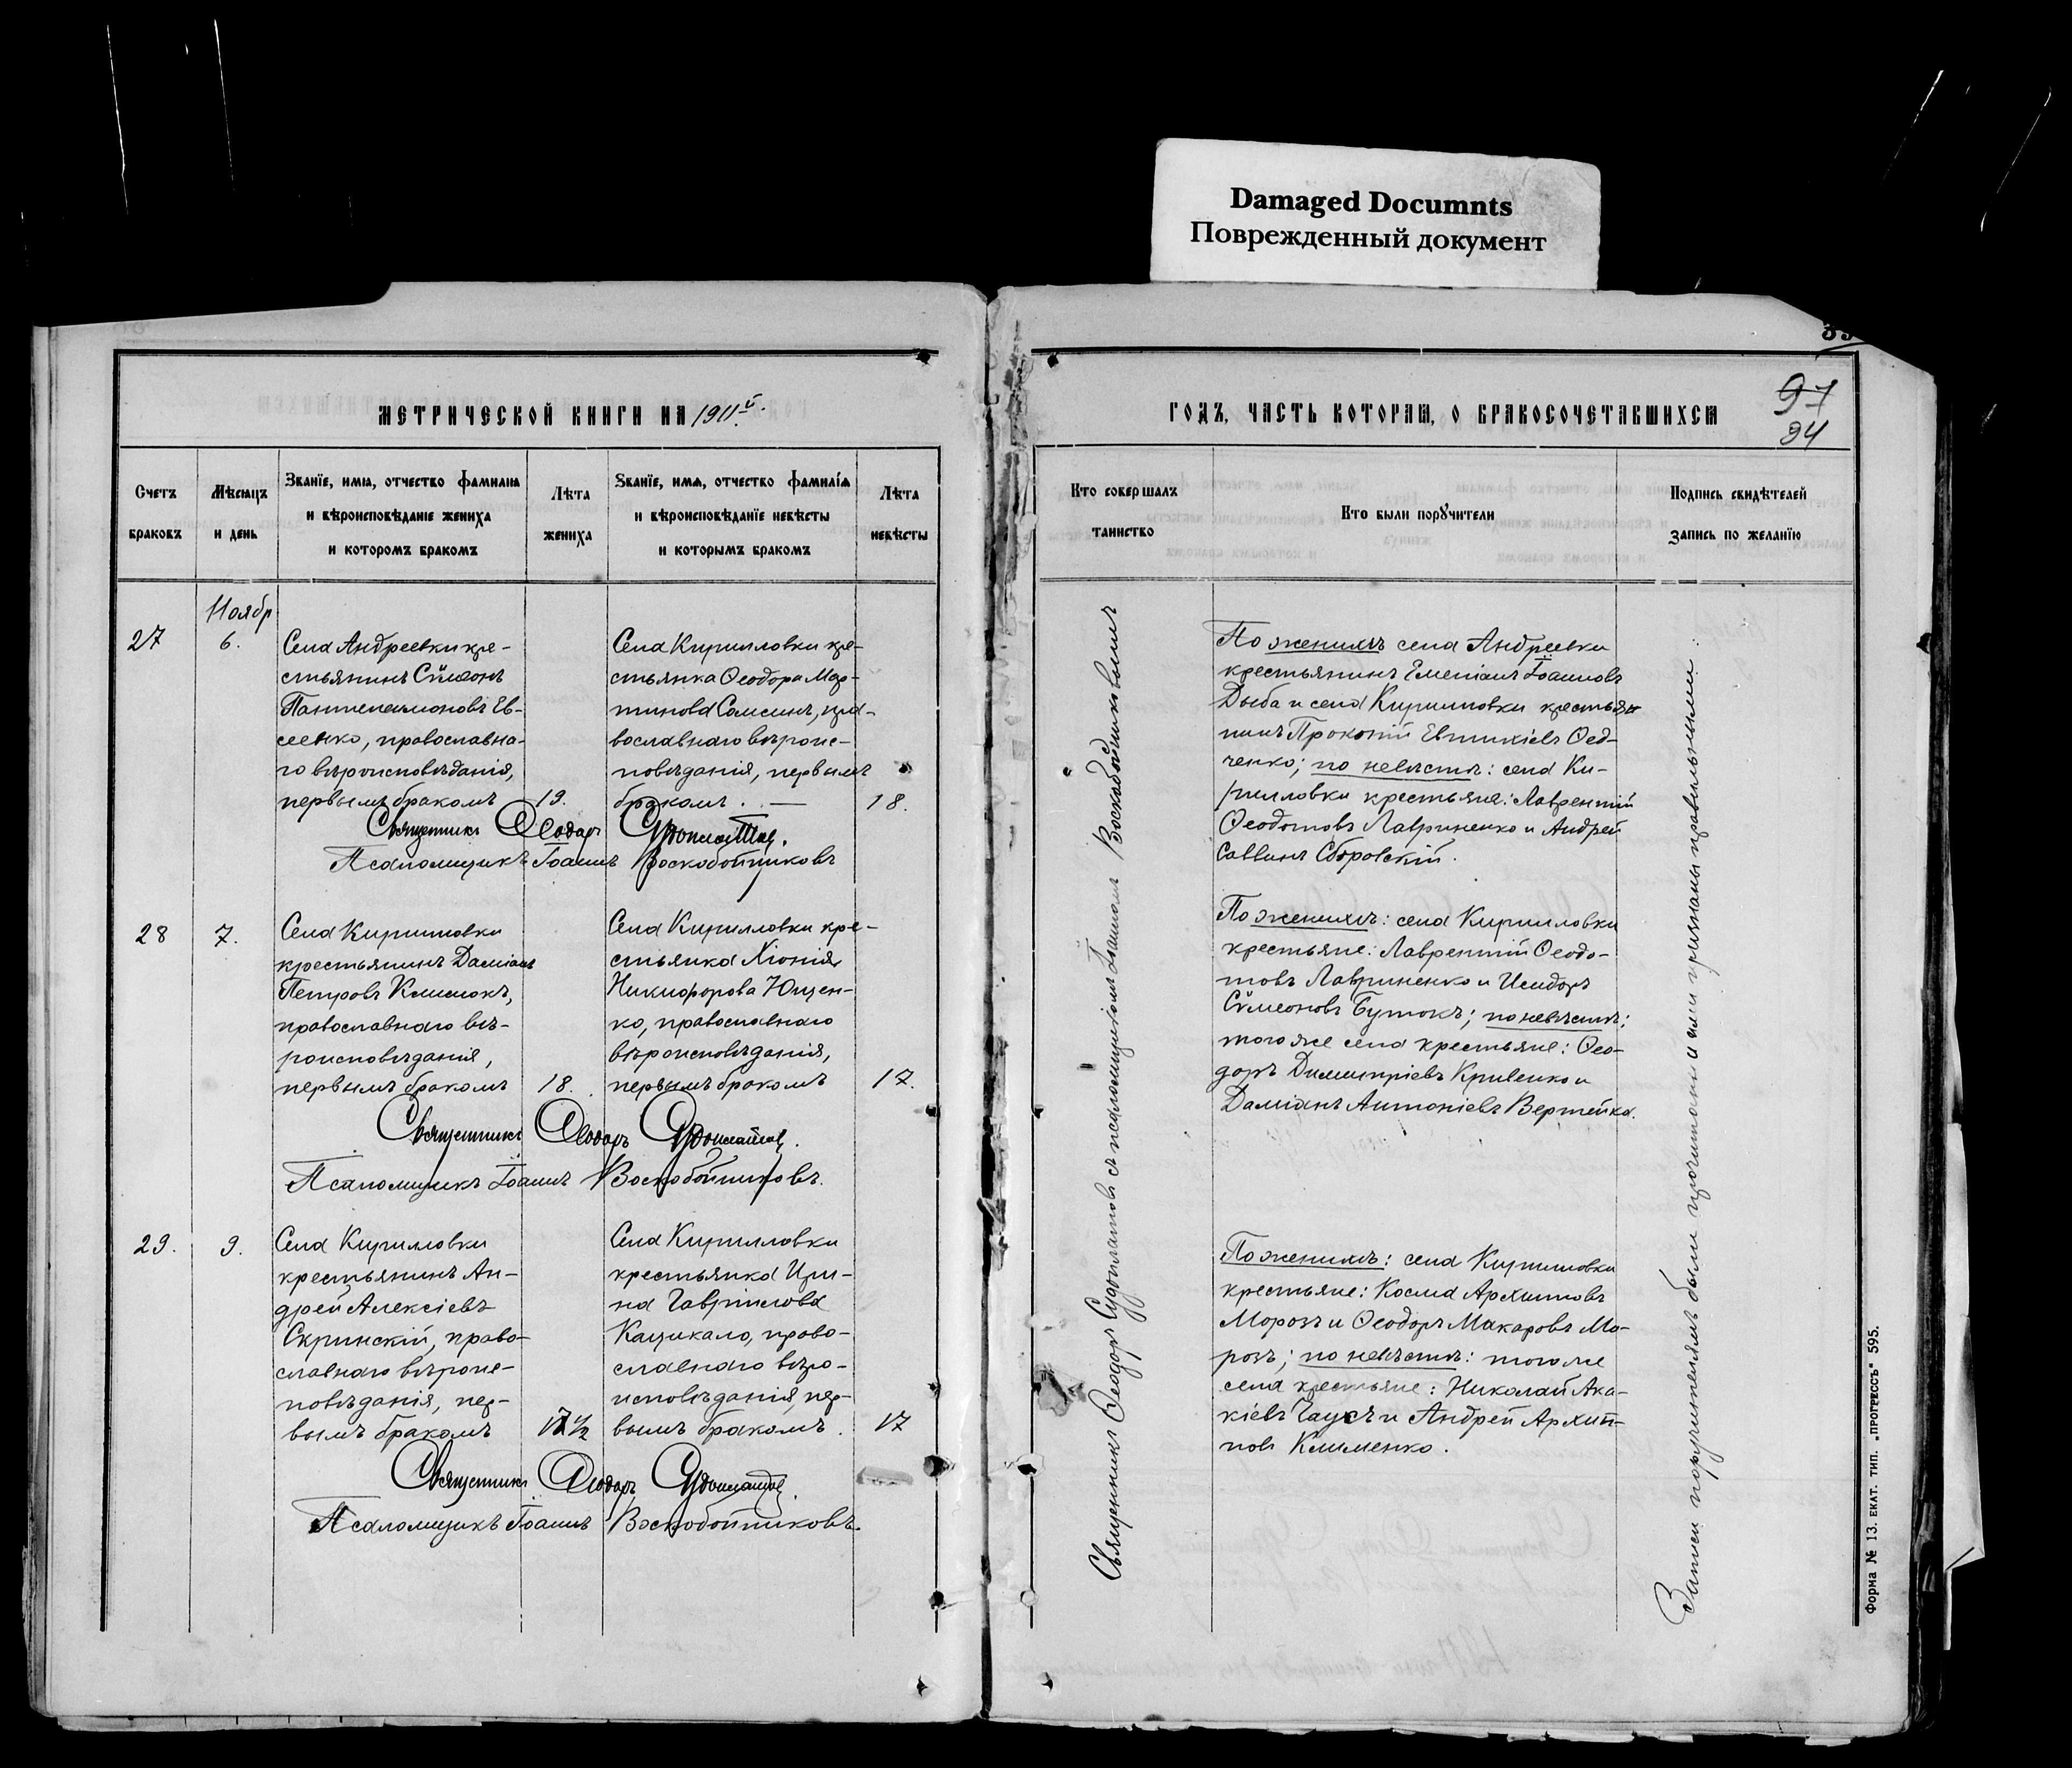 Damaged Documnts
Поврежденный документ
МЕТРИЧЕСКОЙ КНИГИ НА 1911й.
Счетъ
браковъ
Мѣсяцъ
и день
Званїе, имя, отчество фамилїя
и вѣроисповѣданїе жениха
и которомъ бракомъ
Лѣта
жениха
Званїе, имя, отчество фамилїя
и вѣроисповѣданїе невѣсты
и которымъ бракомъ
Лѣта
невѣсты
27
Ноябр
6.
Села Андреевки кре-
стьянинъ Сѵмеонъ
Пантелеимоновъ Ев-
сеенко, православна-
го вѣроисповѣданія,
первымъ бракомъ
19.
Села Кирилловки кре-
стьянка Ѳеодора Мар-
тинова Самсинъ, пра-
вославнаго вѣроис-
повѣданія, первымъ
бракомъ.
18.
Священникъ Ѳеодоръ
Псаломщикъ Іоаннъ Воскобойниковъ
28
7.
Села Кирилловки
крестьянинъ Даміанъ
Петровъ Климокъ,
православнаго вѣ-
роисповѣданія,
первымъ бракомъ
18.
Села Кирилловки кре-
стьянка Хіонія
Никифорова Ющен-
ко, православнаго
вѣроисповѣданія,
первымъ бракомъ
17.
Священникъ Ѳеодоръ
Псаломщикъ Іоаннъ Воскобойниковъ.
29.
9.
Села Кирилловки
крестьянинъ Ан-
дрей Алексіевъ
Скринскій, право-
славнаго вѣроис-
повѣданія, пер-
вымъ бракомъ
17 1/2
Села Кирилловки
крестьянка Ири-
на Гавріилова
Кацикало, право-
славнаго вѣро-
исповѣданія, пер-
вымъ бракомъ.
17
Священникъ Ѳеодоръ
Псаломщикъ Іоаннъ Воскобойниковъ.
ГОДЪ, ЧАСТЬ КОТОРАЯ, О БРАКОСОЧЕТАВШИХСЯ
97
94
Кто совершалъ
таинство
Кто были порꙋчители
Подпись свидѣтелей
запись по желанїю
Священникъ Ѳеодоръ съ псаломщикомъ Іоанномъ Воскобойниковымъ
По женихѣ села Андреевки
крестьянинъ Емеліанъ Іоанновъ
Дыба и села Кирилловки крестья-
нинъ Прокопій Евтихіевъ Ѳед-
ченко; по невѣстѣ: села Ки-
рилловки крестьяне: Лаврентій
Ѳеодотовъ Лавриненко и Андрей
Саввинъ Сборовскій.
По женихѣ: села Кирилловки
крестьяне: Лаврентій Ѳеодо-
товъ Лавриненко и Исидоръ
Сѵмеоновъ Бутокъ; по невѣстѣ:
того же села крестьяне: Ѳео-
доръ Димитріевъ Кривенко и
Даміанъ Антоніевъ Вертейко.
По женихѣ: села Кирилловки
крестьяне: Косма Архиповъ
Морозъ и Ѳеодоръ Макаровъ Мо-
розъ; по невѣстѣ: того же
села крестьяне: Николай Ака-
кіевъ Гаусъ и Андрей Архип-
повъ Клименко.
Записи поручителямъ были прочитаны и ими признаны правильными.
Форма № 13. ЕКАТ. ТИП. „ПРОГРЕССЪ" 595.